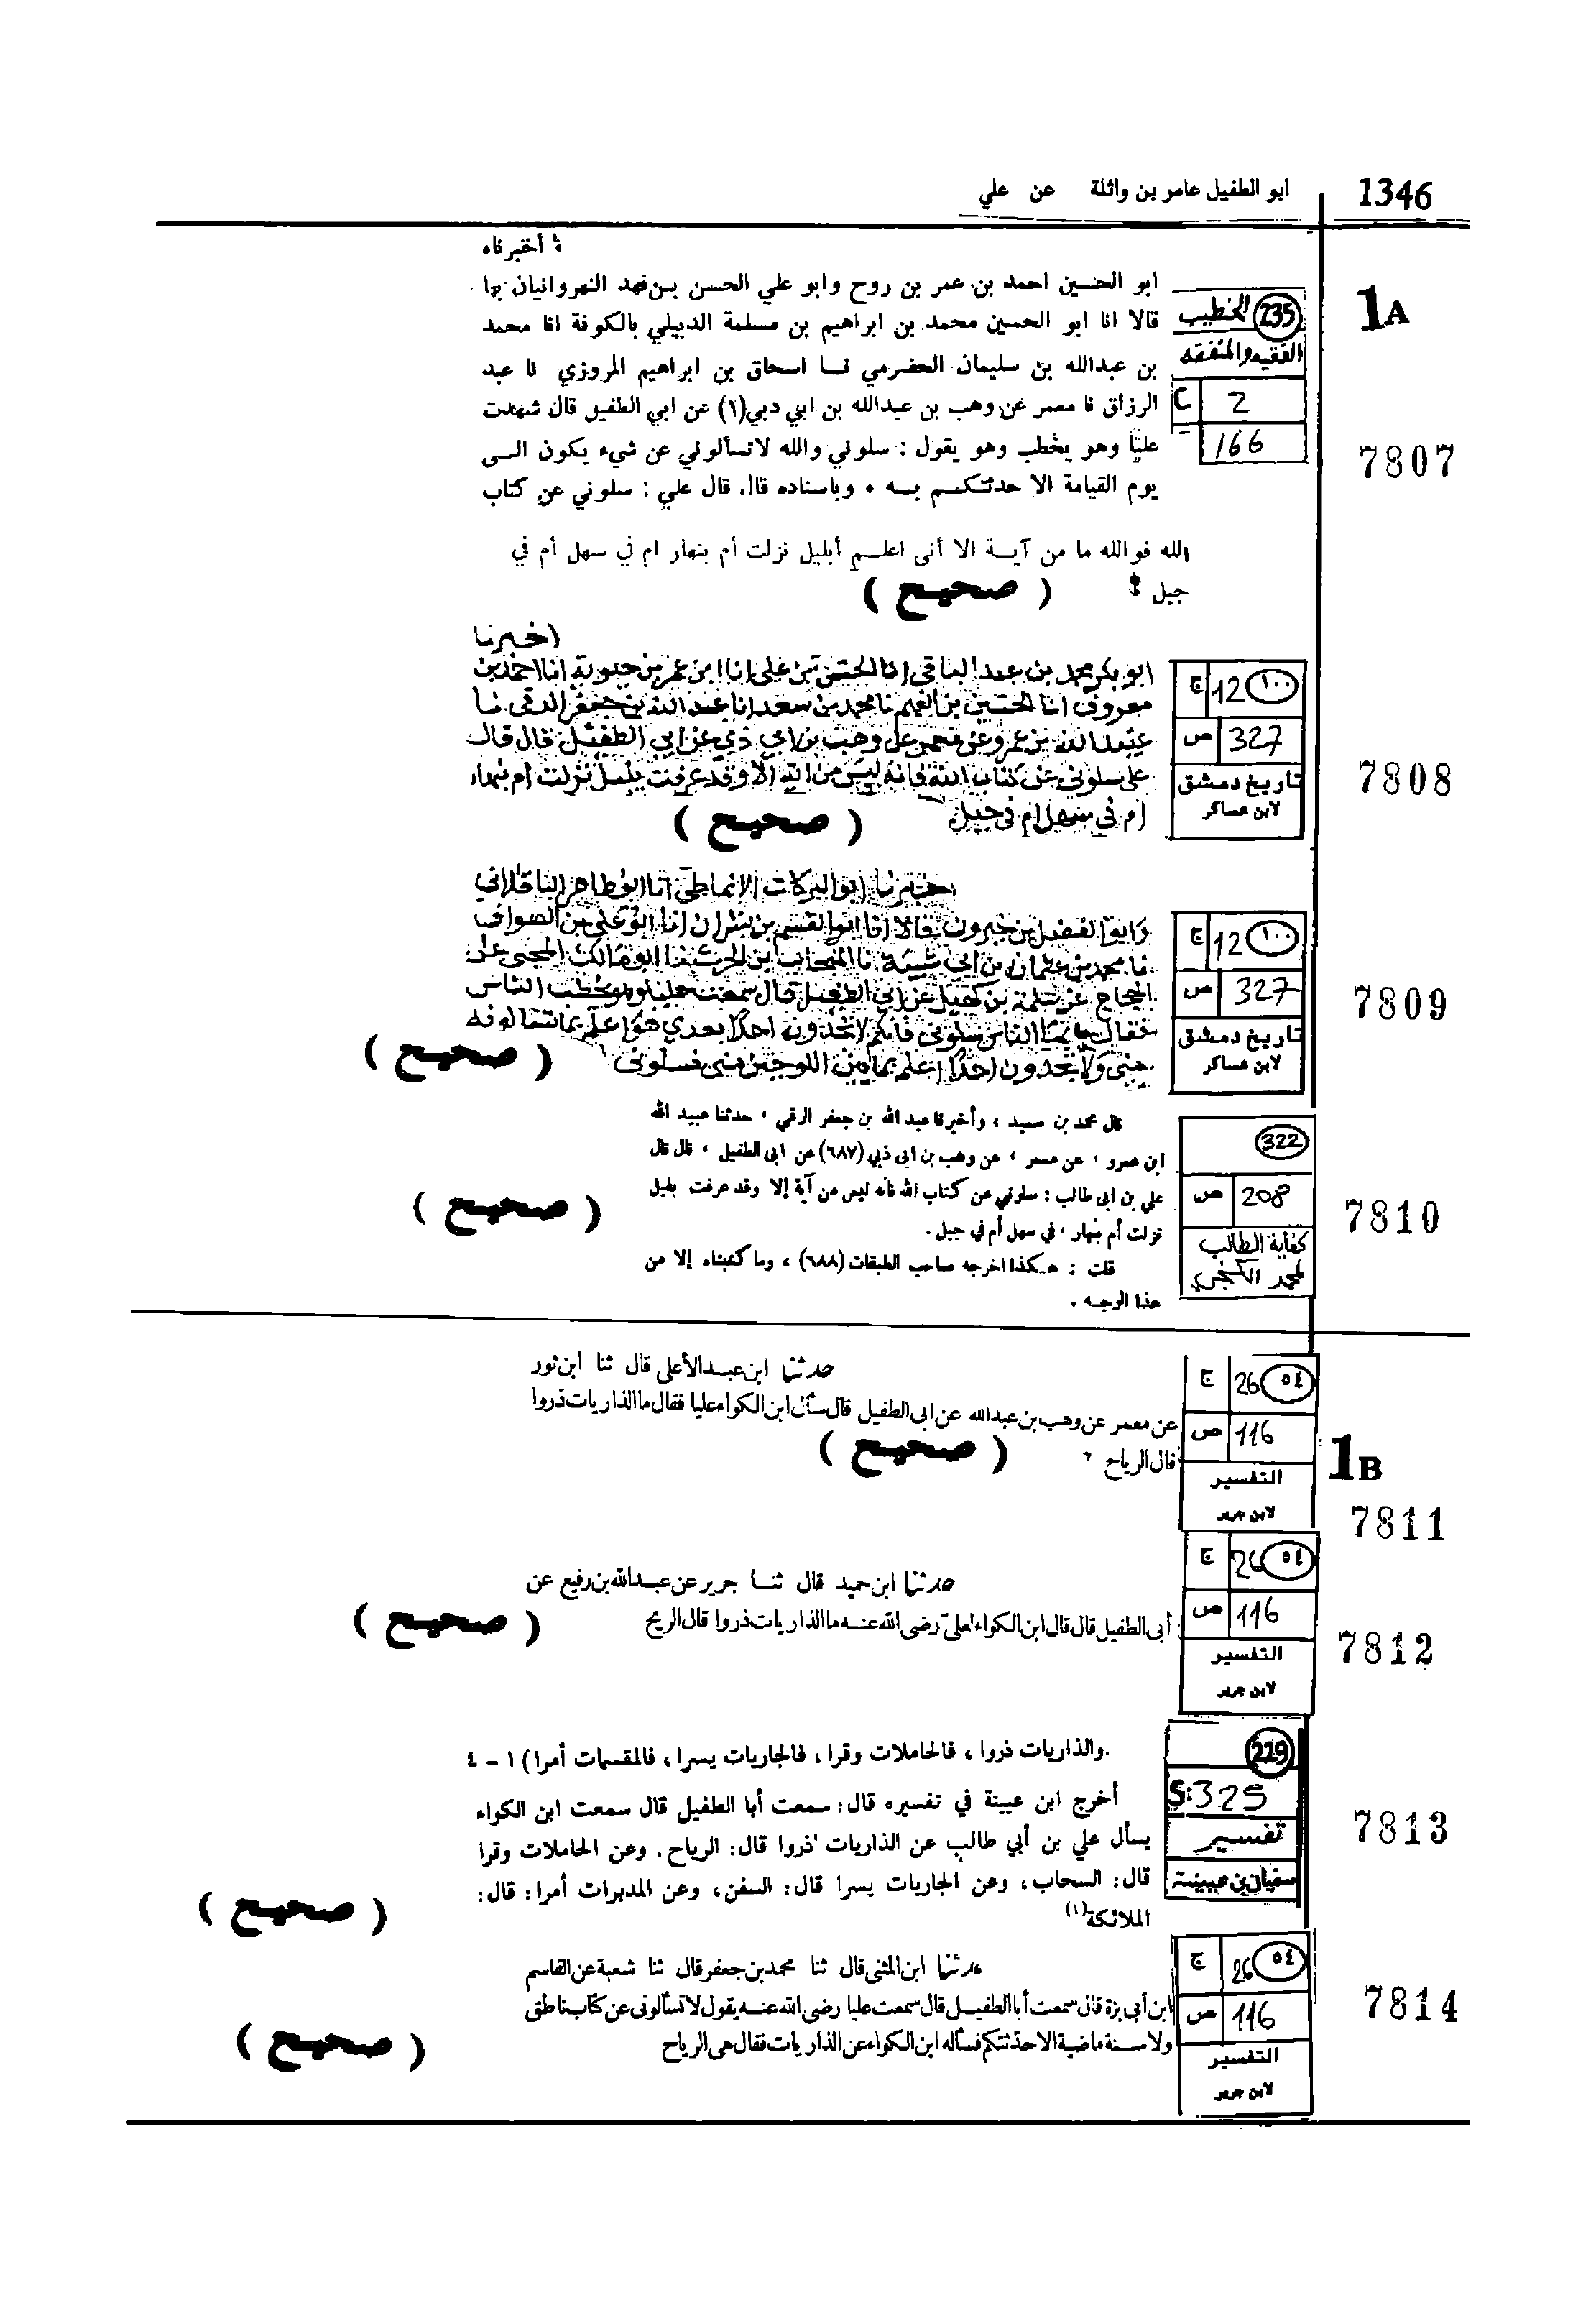 1346
ابو الطفيل عامر بن واثلة عن علي
1A
7807
235 الخطيب
الفقيه والمتفقه
2
166
أخبرناه
ابو الحسين احمد بن عمر بن روح وابو علي الحسن بن فهد النهروانيان بها
قالا انا ابو الحسين محمد بن ابراهيم بن مسلمة الدبيلي بالكوفة انا محمد
بن عبدالله بن سليمان الحضرمي نا اسحاق بن ابراهيم المروزي نا عبد
الرزاق نا معمر عن وهب بن عبدالله بن ابي دبي(١) عن ابي الطفيل قال شهدت
عليًا وهو يخطب وهو يقول : سلوني والله لاتسألوني عن شيء يكون الى
يوم القيامة الا حدثتكم به . وباسناده قال قال علي : سلوني عن كتاب
الله فوالله ما من آية الا أنى اعلم أبليل نزلت أم بنهار ام في سهل أم في
جبل
( صحيح )
7808
١٠٠ 12 ج
327 ص
تاريخ دمشق
لابن عساكر
اخبرنا
ابو بكر محمد بن عبد الباقي انا الحسن بن علي انا ابن عمر بن حيوية انا احمد بن
معروف انا الحسين بن الفهم نا محمد بن سعد انا عبد الله بن جعفر الرقي نا
عبيد الله بن عمرو عن معمر عن وهب بن ابي دبي عن ابي الطفيل قال قال
علي سلوني عن كتاب الله فانه ليس من اية الا وقد عرفت بليل نزلت ام بنهار
ام في سهل ام في جبل
( صحيح )
7809
١٠٠ 12 ج
327 ص
تاريخ دمشق
لابن عساكر
اخبرنا ابو البركات الانماطي انا ابو طاهر الباقلاني
وابو الفضل بن خيرون قالا انا ابو القسم بن بشران انا ابو علي بن الصواف
نا محمد بن عثمان بن ابي شيبة نا المنجاب بن الحرث نا ابو مالك الجنبي عن
الحجاج عن سلمة بن كهيل عن ابي الطفيل قال سمعت عليا وهو يخطب الناس
فقال يا ايها الناس سلوني فانكم لا تجدون احدا بعدي هو اعلم بما تسألونه
مني ولا تجدون احدا اعلم بما بين اللوحين مني فسلوني
( صحيح )
7810
322
208 ص
كفاية الطالب
لمحمد الكنجي
قال محمد بن سعيد ، وأخبرنا عبد الله بن جعفر الرقي ، حدثنا عبيد الله
ابن عمرو ، عن معمر ، عن وهب بن ابى ذبي (٦٨٧) عن ابى الطفيل ، قال قال
علي بن ابى طالب : سلوني عن كتاب الله فانه ليس من آية إلا وقد عرفت بليل
نزلت أم بنهار ، في سهل أم في جبل .
قلت : هكذا اخرجه صاحب الطبقات (٦٨٨) ، وما كتبناه إلا من
هذا الوجه .
( صحيح )
1B
7811
٥٤ 26 ج
116 ص
التفسير
لابن جرير
حدثنا ابن عبد الأعلى قال ثنا ابن ثور
عن معمر عن وهب بن عبدالله عن ابى الطفيل قال سأل ابن الكواء عليا فقال ما الذاريات ذروا
قال الرياح
( صحيح )
7812
٥٤ 26 ج
116 ص
التفسير
لابن جرير
حدثنا ابن حميد قال ثنا جرير عن عبدالله بن رفيع عن
أبى الطفيل قال قال ابن الكواء لعلىّ رضى الله عنه ما الذاريات ذروا قال الريح
( صحيح )
7813
229
S: 325
تفسير
سفيان بن عيينة
والذاريات ذروا ، فالحاملات وقرا ، فالجاريات يسرا ، فالمقسمات أمرا) ١ - ٤
أخرج ابن عيينة في تفسيره قال: سمعت أبا الطفيل قال سمعت ابن الكواء
يسأل علي بن أبي طالب عن الذاريات ذروا قال: الرياح. وعن الحاملات وقرا
قال: السحاب، وعن الجاريات يسرا قال: السفن، وعن المدبرات أمرا: قال:
الملائكة(١)
( صحيح )
7814
٥٤ 26 ج
116 ص
التفسير
لابن جرير
حدثنا ابن المثنى قال ثنا محمد بن جعفر قال ثنا شعبة عن القاسم
ابن أبى بزة قال سمعت أبا الطفيل قال سمعت عليا رضى الله عنه يقول لا تسألونى عن كتاب ناطق
ولا سنة ماضية الا حدثتكم فسأله ابن الكواء عن الذاريات فقال هى الرياح
( صحيح )